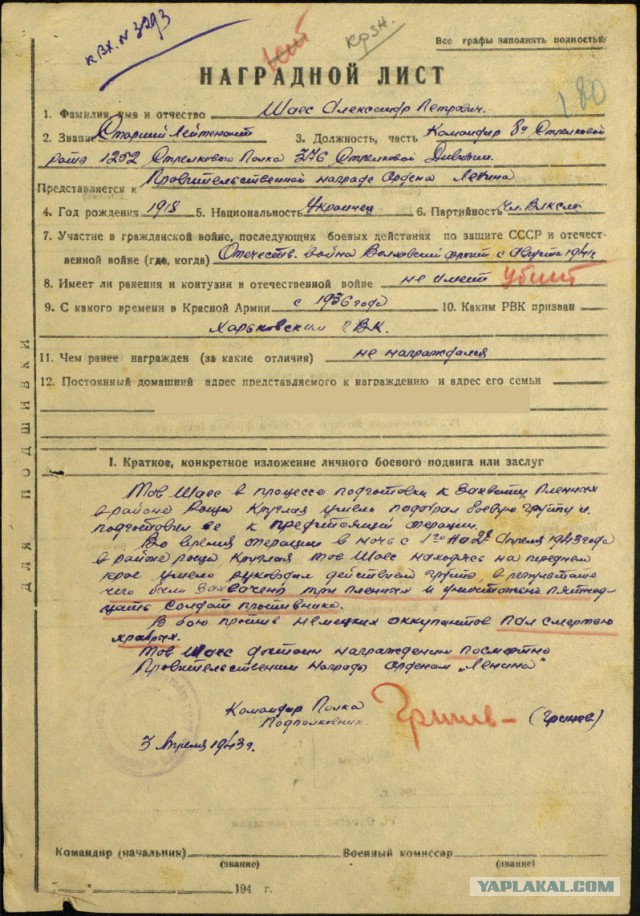 к вх. N 3293
Все графы заполнять полностью
НАГРАДНОЙ ЛИСТ
180
1. Фамилия, имя и отчество Шаес Александр Петрович.
2. Звание Старший Лейтенант 3. Должность, часть Командир 8й Стрелковой
роты 1252 Стрелкового Полка 376 Стрелковой Дивизии.
Представляется к Правительственной награде Ордена Ленина
4. Год рождения 1918 5. Национальность Украинец 6. Партийность чл. ВЛКСМ
7. Участие в гражданской войне, последующих боевых действиях по защите СССР и отечест-
венной войне (где, когда) Отечеств. война Волховский фронт с Августа 1941г
8. Имеет ли ранения и контузии в отечественной войне не имеет убит
9. С какого времени в Красной Армии с 1936 года 10. Каким РВК призван
Харьковским ГВК.
11. Чем ранее награжден (за какие отличия) не награждался
12. Постоянный домашний адрес представляемого к награждению и адрес его семьи
ДЛЯ ПОДШИВКИ
I. Краткое, конкретное изложение личного боевого подвига или заслуг
Тов Шаес в процессе подготовки к захвату пленных
в районе Роща Круглая умело подобрал боевую группу и
подготовил ее к предстоящей операции.
Во время операции в ночь с 1го на 2е Апреля 1943 года
в районе роща Круглая тов Шаес находясь на переднем
крае умело руководил действием группы, в результате
чего были захвачено три пленных и уничтожено пятнад-
цать солдат противника.
В бою против немецких оккупантов пал смертью
храбрых.
Тов Шаес достоин награждения посмертно
Правительственной награды Орденом „Ленина"
Командир Полка
Подполковник
3 Апреля 1943 г.
Командир (начальник) Военный комиссар
(звание) (звание)
194 г.
YAPLAKAL.COM